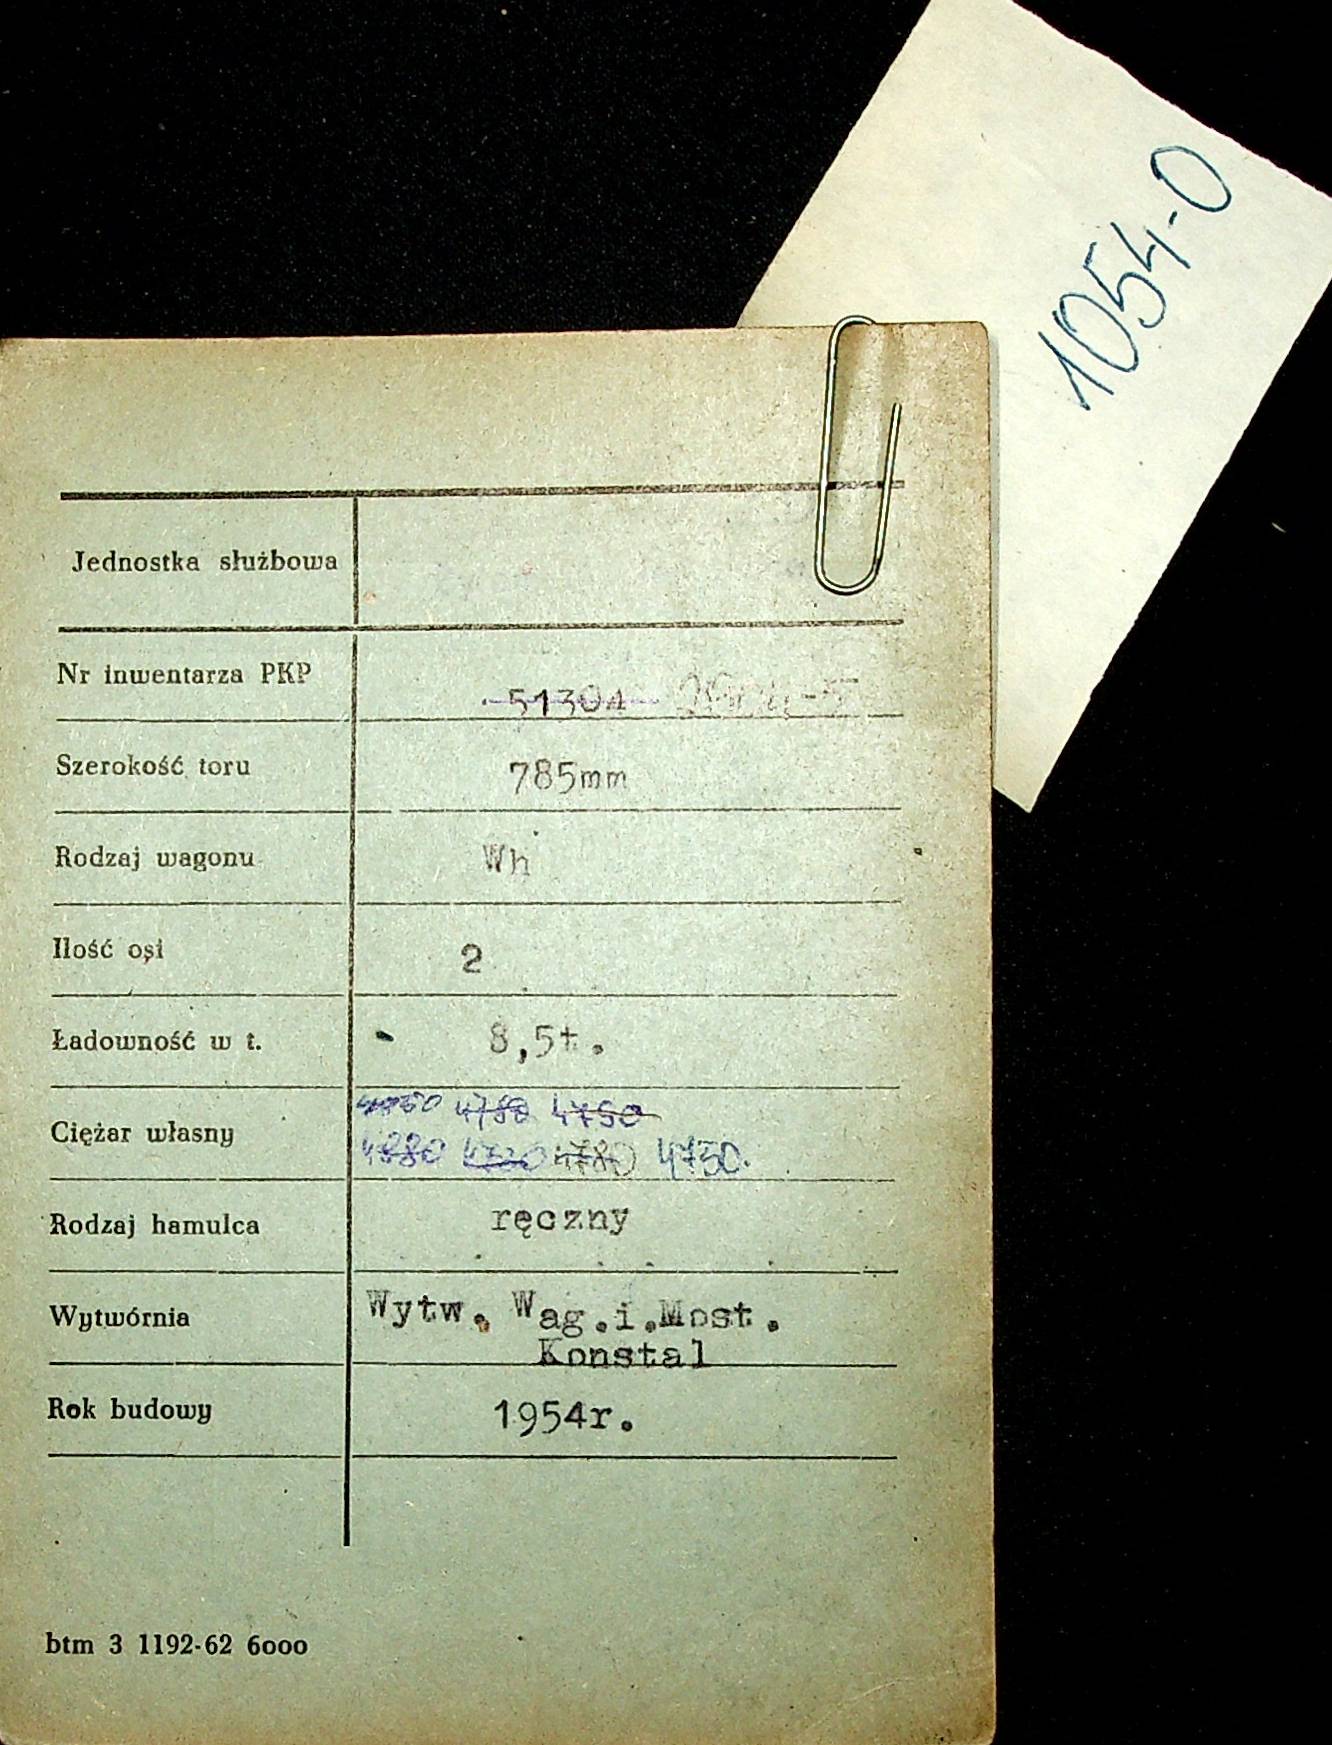 1054-0
Jednostka służbowa
Nr inwentarza PKP 51304
Szerokość toru 785mm
Rodzaj wagonu Wh
Ilość osi 2
Ładowność w t. 8,5t.
Ciężar własny 4750 4750
4880 4780 4750.
Rodzaj hamulca ręczny
Wytwórnia Wytw. Wag.i.Most.
Konstal
Rok budowy 1954r.
btm 3 1192-62 6000